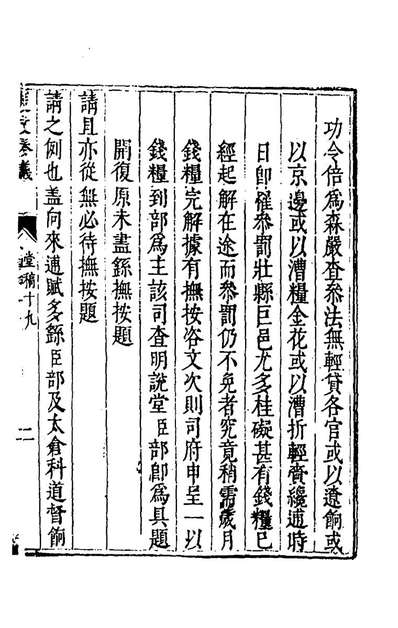 功令倍爲森嚴查叅法無輕貸各官或以遼餉或
以京邊或以漕糧金花或以漕折輕賫纔逋時
日卽罹叅罰壯縣巨邑尤多桂礙甚有錢糧已
經起解在途而叅罰仍不免者究竟稍需歲月
錢糧完解據有撫按咨文次則司府申呈一以
錢糧到部爲主該司查明說堂臣部卽爲具題
開復原未盡繇撫按題
請且亦從無必待撫按題
請之例也盖向來逋賦多繇臣部及太倉科道督餉
堂稿十九
二